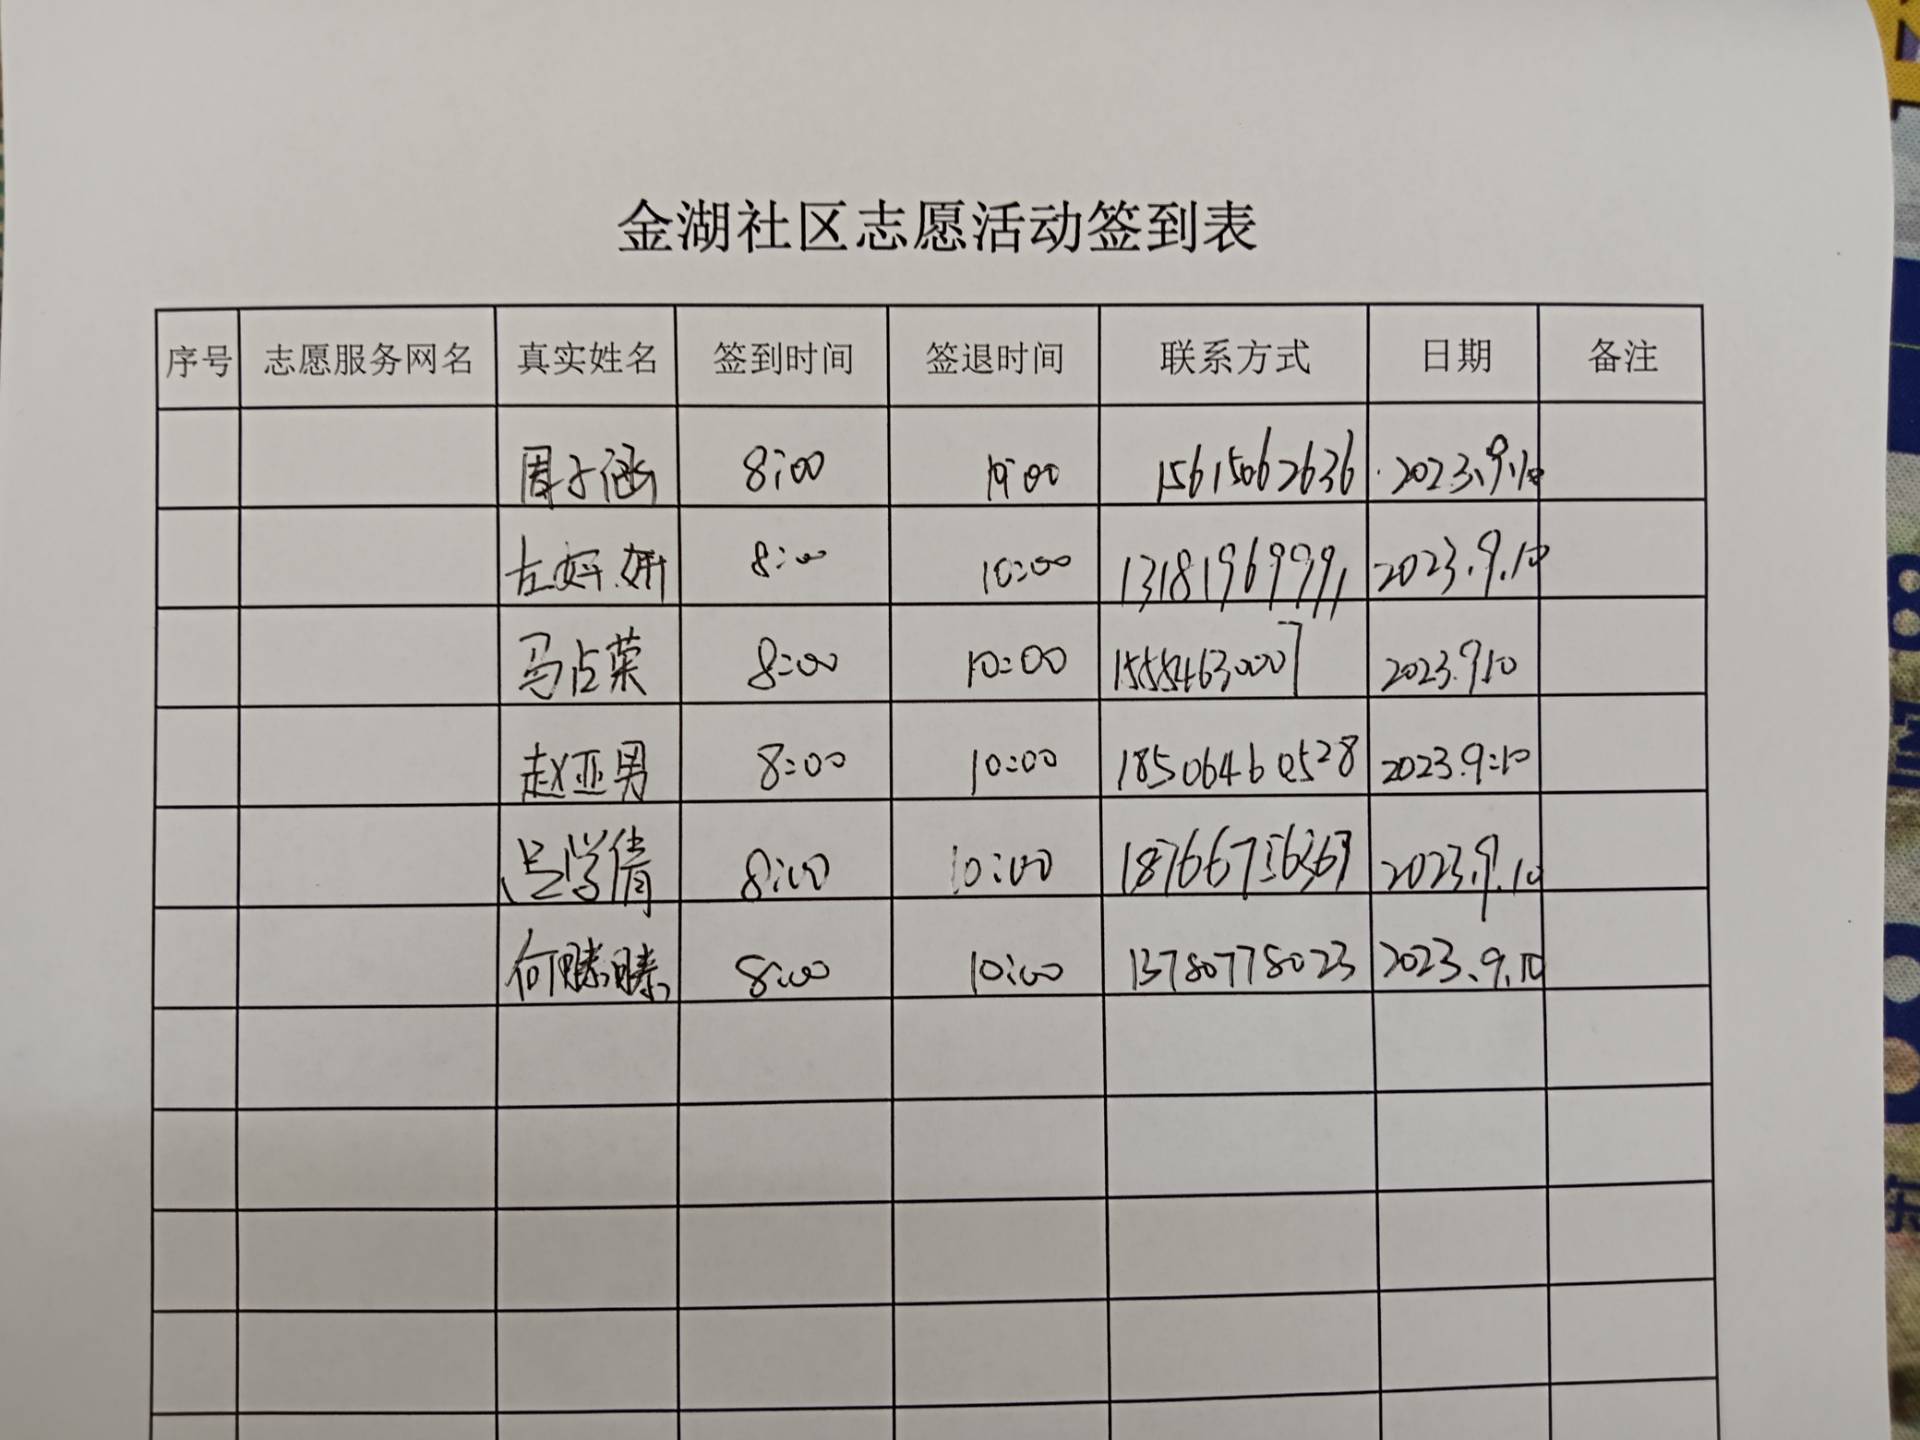 金湖社区志愿活动签到表
序号 志愿服务网名 真实姓名 签到时间 签退时间 联系方式 日期 备注
周子涵 8:00 10:00 15615062636 2023.9.10
左妍妍 8:00 10:00 13181969991 2023.9.10
马占荣 8:00 10:00 15554630007 2023.9.10
赵亚男 8:00 10:00 18506460528 2023.9.10
吕学倩 8:00 10:00 18766756367 2023.9.10
何 8:00 10:00 13780778023 2023.9.10